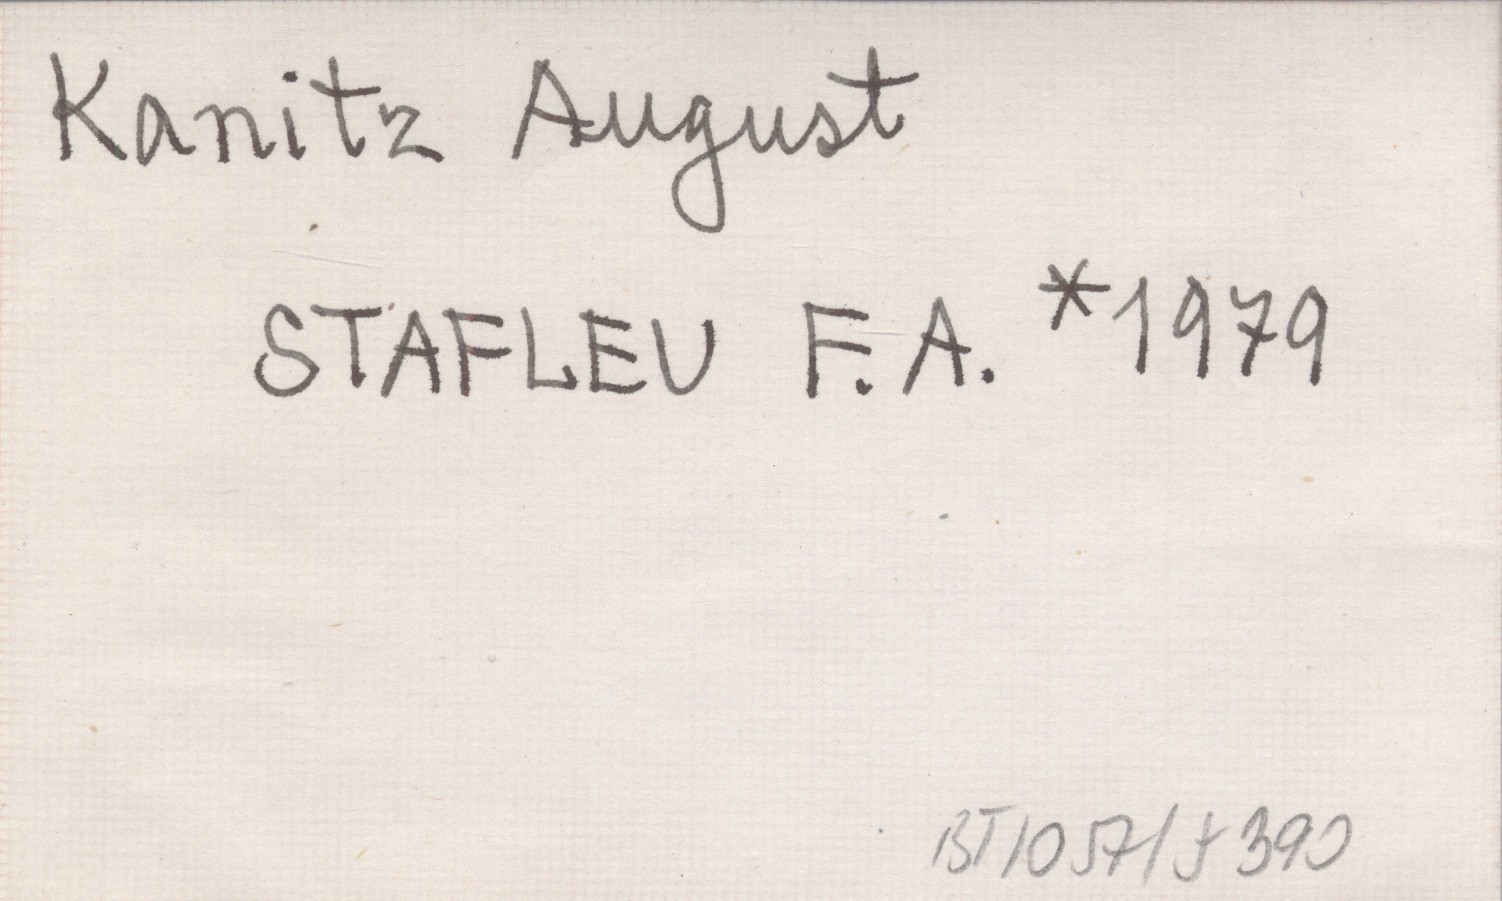 Kanitz August
STAFLEU F.A. *1979
BT/057/J390